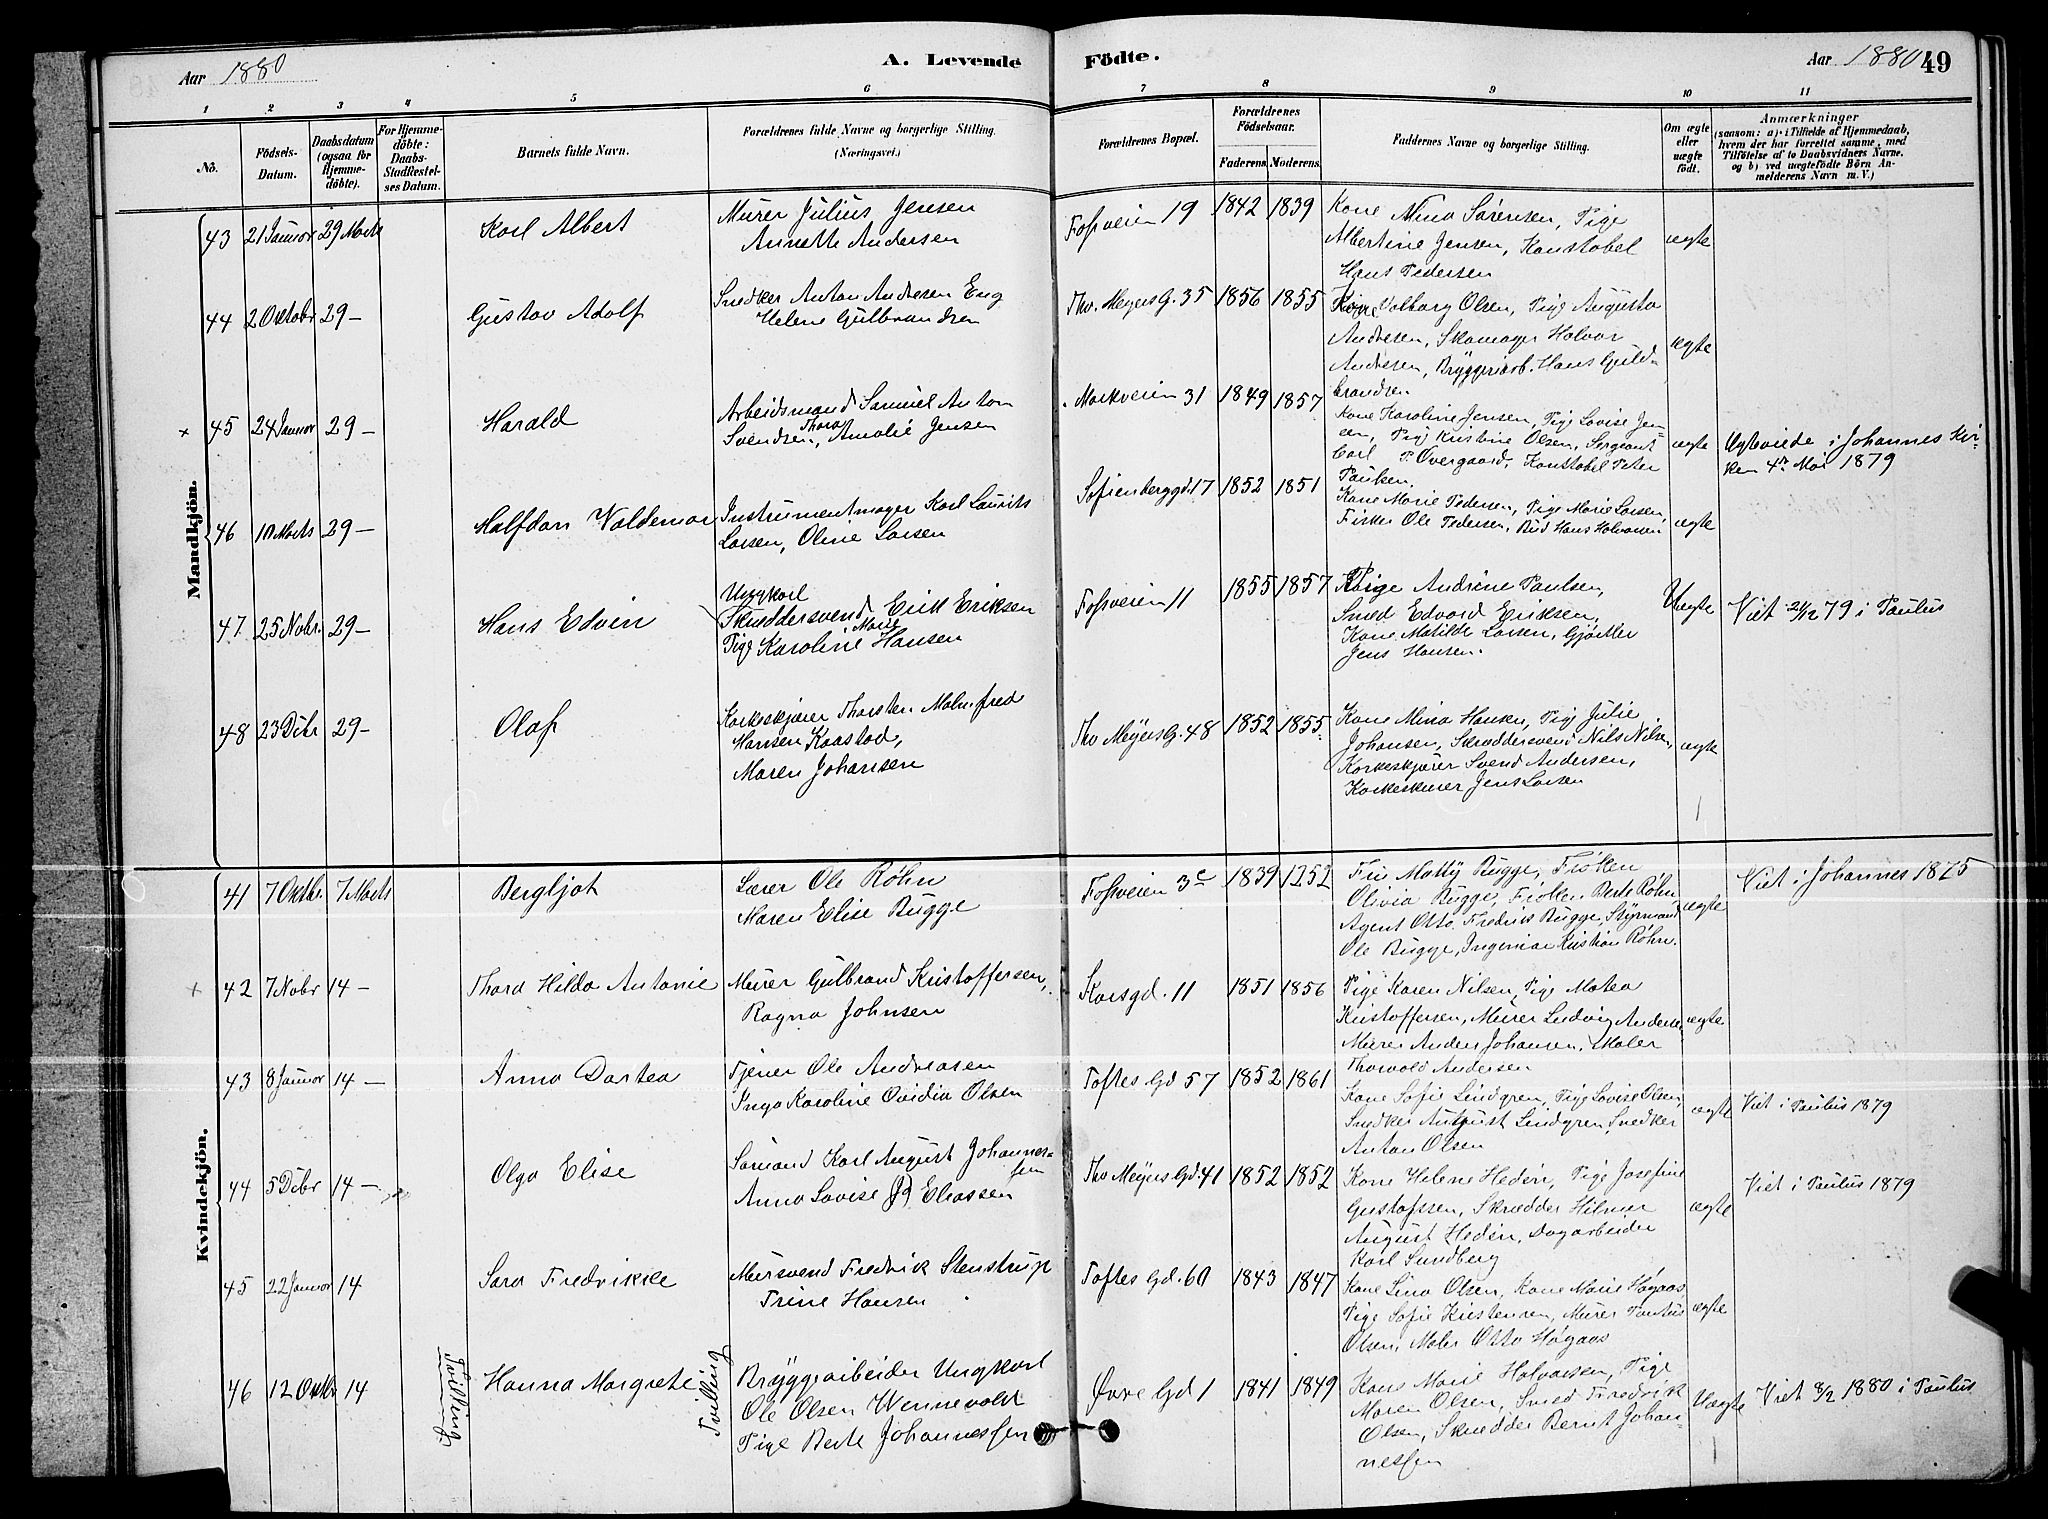 Aar 1880
A. Levende Födte.
Aar 1880
49
1 2 3 4 5 6 7 8 9 10 11
No.
Födsels-
Datum.
Daabsdatum
(ogsaa for
Hjemme-
döbte).
For Hjemme-
döbte:
Daabs-
Stadfæstel-
ses Datum.
Barnets fulde Navn.
Forældrenes fulde Navne og borgerlige Stilling.
(Næringsvei.)
Forældrenes Bopæl.
Forældrenes
Födselsaar.
Faderens. Moderens.
Faddernes Navne og borgerlige Stilling.
Om ægte
eller
uægte
födt.
Anmærkninger
(saasom: a) i Tilfælde af Hjemmedaab,
hvem der har forrettet samme, med
Tilföielse af to Daabsvidners Navne.
og b) ved uægtefödte Börn An-
melderens Navn m. V.)
Mandkjön.
43 21 Januar 29 Marts
Karl Albert
Murer Julius Jensen
Annette Andersen
Fossveien 19
1842 1839
Kone Mina Sørensen, Pige
Albertine Jensen, Konstabel
Hans Pedersen
ægte
44 2 Oktobr 29 –
Gustav Adolf
Snedker Anton Andresen Eng
Helene Gulbrandsen
Thv. Meyers G. 35
1856 1855
Kone Valborg Olsen, Pige Augusta
Andresen, Skomager Halvor
Andresen, Bryggeriarb. Hans Guld-
brandsen
ægte
× 45 24 Januar 29 –
Harald
Arbeidsmand Samuel Anton
Svendsen, Thora Amalie Jensen
Markveien 31
1849 1857
Kone Karoline Jensen, Pige Lovise Jen-
sen, Pige Kristine Olsen, Sergeant
Carl P. Overgaard, Konstabel Peter
Paulsen.
ægte
Ægteviede i Johannes Kir-
ken 4de Mai 1879
46 10 Marts 29 –
Halfdan Valdemar
Instrumentmager Karl Laurits
Larsen, Oline Larsen
Sofienberggd. 17
1852 1851
Kone Marie Pedersen, Pige Marie Larsen,
Fisker Ole Pedersen, Bud Hans Halvorsen
ægte
47 25 Nobr. 29 –
Hans Edvin
Ungkarl
Skræddersvend Erik Eriksen
Pige Karoline Marie Hansen
Fossveien 11
1855 1857
Pige Andrine Paulsen,
Smed Edvard Eriksen,
Kone Matilde Larsen, Gjørtler
Jens Hansen.
Uægte
Viet 21/12 79 i Paulus
48 23 Dcbr 29 –
Olaf
Korkeskjærer Thorsten Malmfred
Hansen Kaastad,
Maren Johansen
Thv Meyers G. 48
1852 1855
Kone Mina Hansen, Pige Julie
Johansen, Skræddersvend Nils Nilsen,
Korkeskjærer Svend Andersen,
Korkeskærer Jens Larsen
ægte
Kvindekjön.
41 7 Oktbr. 7 Marts
Bergljot
Lærer Ole Røhn
Maren Elise Bugge
Fossveien 3c
1839 1252
Fru Matty Bugge, Frøken
Olivia Bugge, Frøken Berte Røhn,
Agent Otto Fredrik Bugge, Styrmand
Ole Bugge, Ingeniør Kristian Røhn.
ægte
Viet i Johannes 1875
× 42 7 Nobr 14 –
Thora Hilda Antonie
Murer Gulbrand Kristoffersen,
Ragna Johnsen
Korsgd. 11
1851 1856
Pige Karen Nilsen, Pige Matea
Kristoffersen, Murer Ludvig Andersen,
Murer Anders Johansen, Maler
Thorvald Andersen
ægte
43 8 Januar 14 –
Anna Dortea
Tjener Ole Andreasen
Inga Karoline Ovidia Olsen
Toftes Gd 57
1852 1861
Kone Sofie Lindgren, Pige Lovise Olsen,
Snedker August Lindgren, Snedker
Anton Olsen
ægte
Viet i Paulus 1879
44 5 Dcbr 14 –
Olga Elise
Sømand Karl August Johannes-
sen
Anna Lovise Eliassen
Thv Meyers Gd. 41
1852 1852
Kone Helene Hedin, Pige Josefine
Gustafssen, Skrædder Hilmer
August Hedin, Dagarbeider
Karl Sundberg
ægte
Viet i Paulus 1879
45 22 Januar 14
Sara Fredrikke
Mursvend Fredrik Stenstrup
Trine Hansen
Toftes Gd. 60
1843 1847
Kone Lina Olsen, Kone Marie Høgaas,
Pige Sofie Kristensen, Murer Paulus
Olsen, Maler Otto Høgaas
ægte
46 12 Oktbr 14
Tvilling
Hanna Margrete
Tvilling
Bryggearbeider Ungkarl
Ole Olsen Wennevold
Pige Berte Johannessen
Øvre Gd 1
1841 1849
Kone Marie Halvorsen, Pige
Maren Olsen, Smed Fredrik
Olsen, Skrædder Bernt Johan-
nessen
Uægte
Viet 8/2 1880 i Paulus